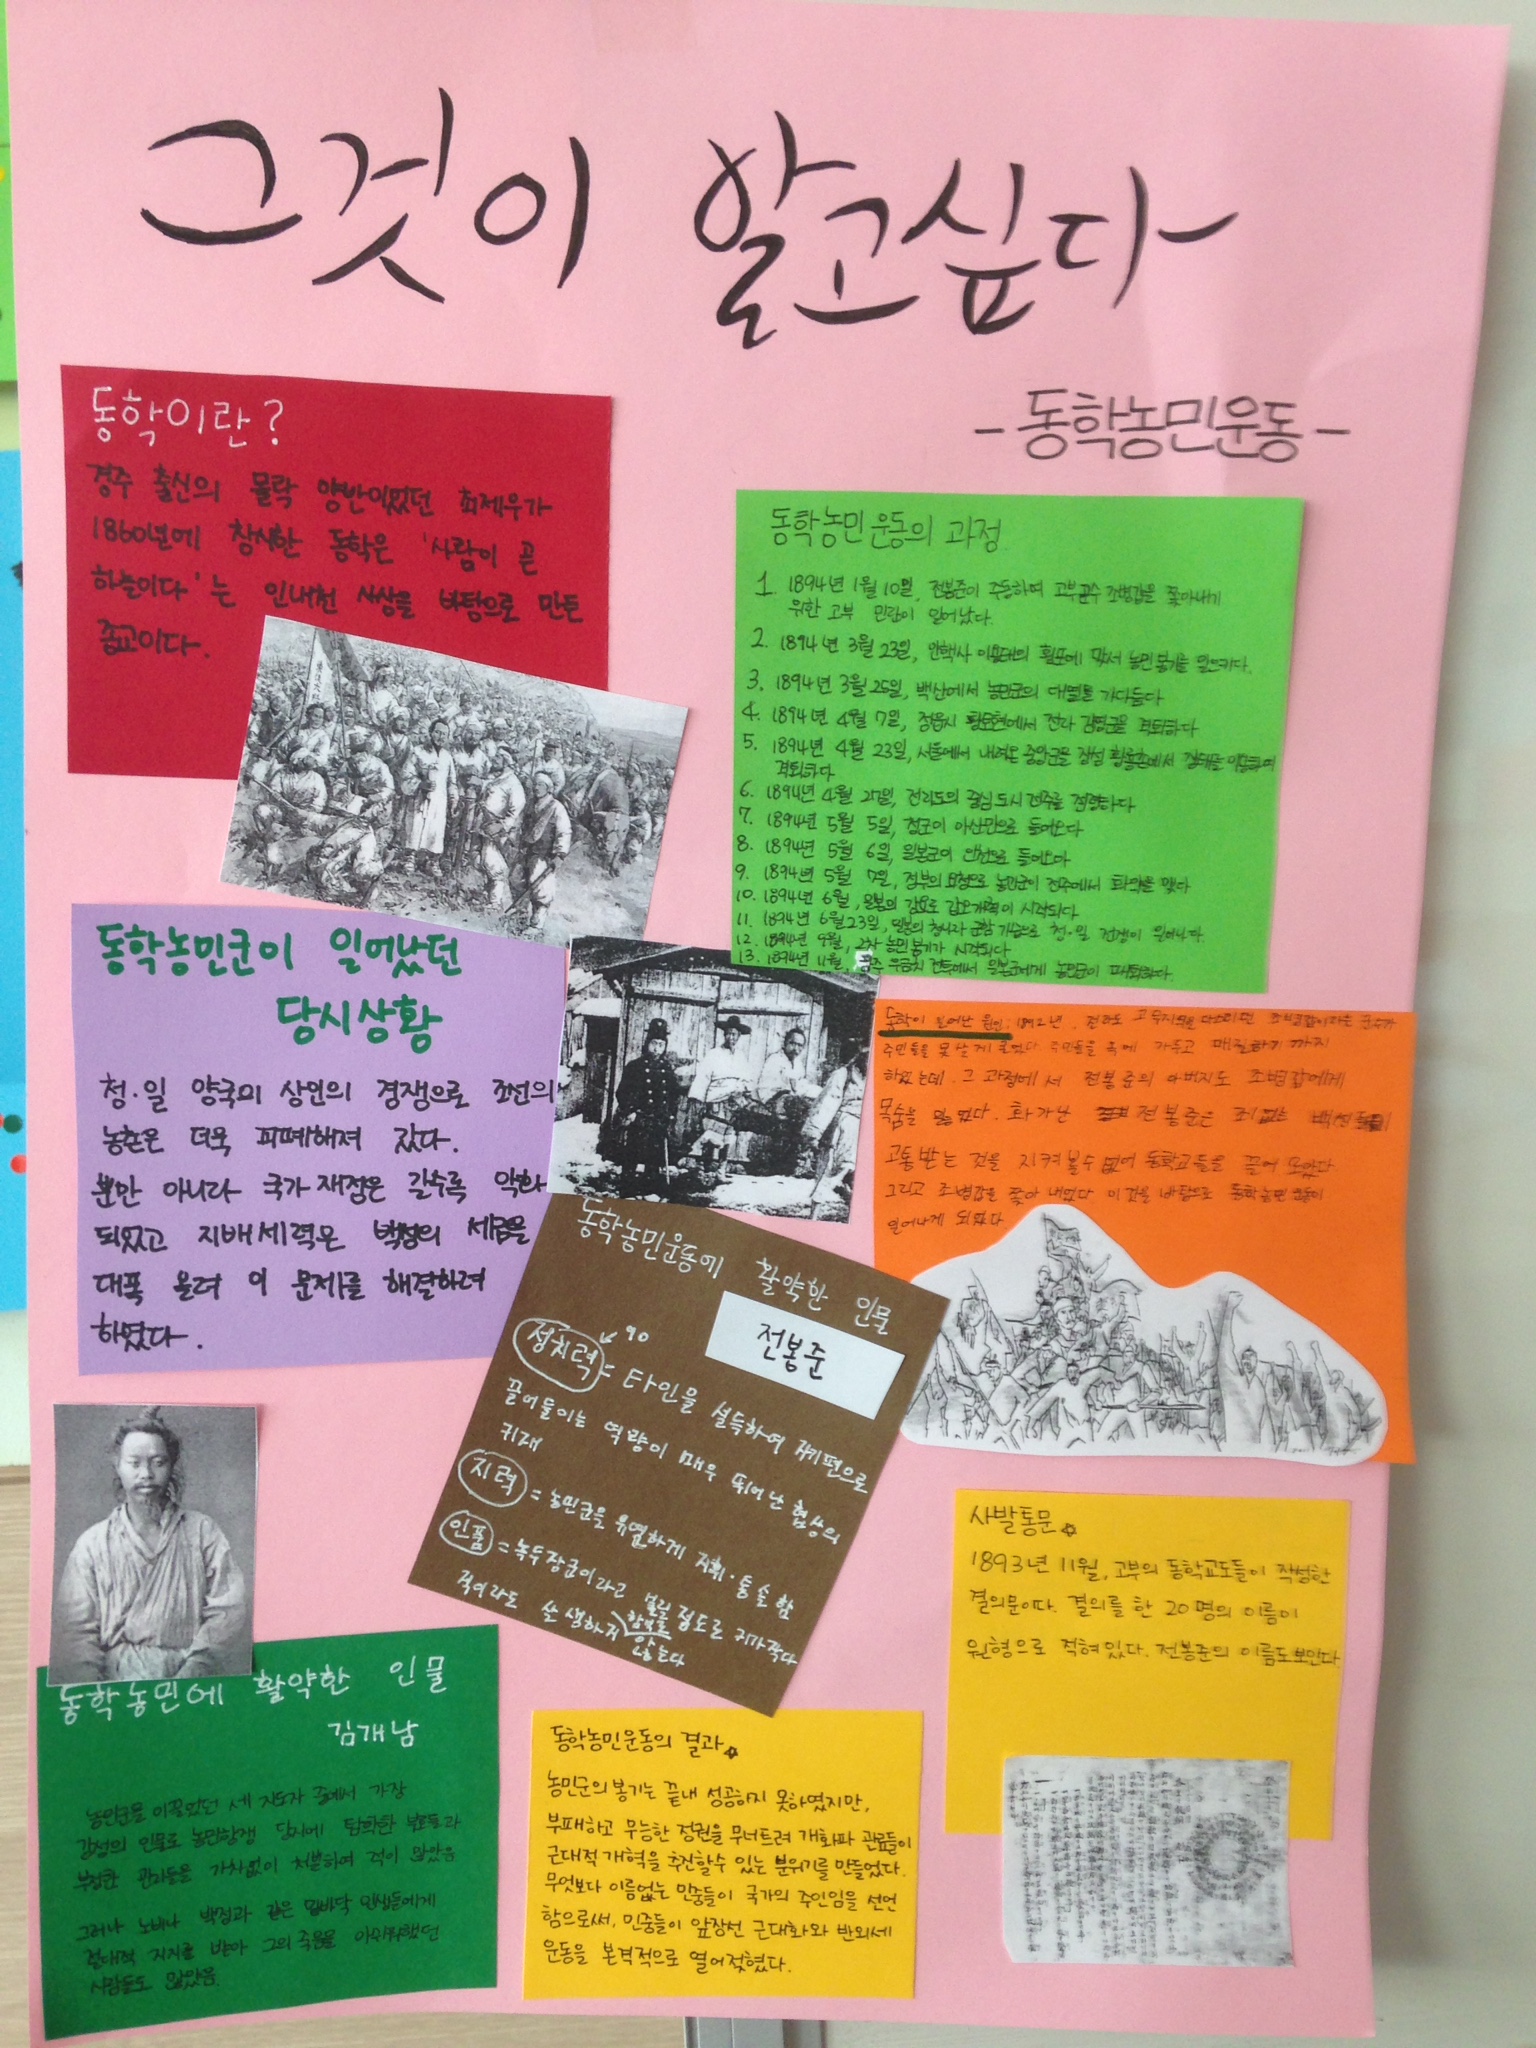 그것이 알고싶다
-동학농민운동-
동학이란?
경주 출신의 몰락 양반이었던 최제우가
1860년에 창시한 동학은 '사람이 곧
하늘이다'는 인내천 사상을 바탕으로 만든
종교이다.
동학농민운동의 과정
1. 1894년 1월 10일, 전봉준이 주동하여 고부군수 조병갑을 쫓아내기
위한 고부 민란이 일어났다.
2. 1894년 3월 23일, 안핵사 이용태의 횡포에 맞서 농민봉기를 일으키다.
3. 1894년 3월 25일, 백산에서 농민군의 대열을 가다듬다
4. 1894년 4월 7일, 정읍시 황토현에서 전라 감영군을 격퇴하다
5. 1894년 4월 23일, 서울에서 내려온 중앙군을 장성 황룡촌에서 장태를 이용하여
격퇴하다
6. 1894년 4월 27일, 전라도의 중심 도시 전주를 점령하다
7. 1894년 5월 5일, 청군이 아산만으로 들어오다
8. 1894년 5월 6일, 일본군이 인천으로 들어오다
9. 1894년 5월 7일, 정부의 요청으로 농민군이 전주에서 화약을 맺다
10. 1894년 6월, 일본의 강요로 갑오개혁이 시작되다
11. 1894년 6월 23일, 일본의 청나라 군함 기습으로 청·일 전쟁이 일어나다.
12. 1894년 9월, 2차 농민봉기가 시작되다
13. 1894년 11월, 공주 우금치 전투에서 일본군에게 농민군이 패퇴하다.
동학농민군이 일어났던
당시상황
청·일 양국의 상인의 경쟁으로 조선의
농촌은 더욱 피폐해져 갔다.
뿐만 아니라 국가 재정은 갈수록 악화
되었고 지배세력은 백성의 세금을
대폭 올려 이 문제를 해결하려
하였다.
동학이 일어난 원인: 1892년, 전라도 고부지역을 다스리던 조병갑이라는 군수가
주민들을 못살게 굴었다. 주민들을 옥에 가두고 매질하기까지
하였는데, 그 과정에서 전봉준의 아버지도 조병갑에게
목숨을 잃었다. 화가난 전봉준은 죄없는 백성들이
고통받는 것을 지켜볼수 없어 동학교도들을 끌어 모았다
그리고 조병갑을 쫓아 내었다 이것을 바탕으로 동학농민운동이
일어나게 되었다
동학농민운동에 활약한 인물
전봉준
정치력 90 = 타인을 설득하여 제편으로
끌어들이는 역량이 매우 뛰어난 협상의
귀재
지력 = 농민군을 유열하게 지휘·통솔함
인품 = 녹두장군이라고 불릴 정도로 키가작다
적이라도 살생하지 함부로 않는다
사발통문
1893년 11월, 고부의 동학교도들이 작성한
결의문이다. 결의를 한 20명의 이름이
원형으로 적혀있다. 전봉준의 이름도보인다.
동학농민에 활약한 인물
김개남
농민군을 이끌었던 세 지도자 중에서 가장
강성의 인물로 농민항쟁 당시에 탐학한 부호들과
부정한 관리들을 가차없이 처분하여 적이 많았음
그러나 노비나 백정과 같은 밑바닥 인생들에게
절대적 지지를 받아 그의 죽음을 아쉬워했던
사람들도 많았음.
동학농민운동의 결과
농민군의 봉기는 끝내 성공하지 못하였지만,
부패하고 무능한 정권을 무너트려 개화파 관료들이
근대적 개혁을 추진할수 있는 분위기를 만들었다.
무엇보다 이름없는 민중들이 국가의 주인임을 선언
함으로써, 민중들이 앞장선 근대화와 반외세
운동을 본격적으로 열어젖혔다.